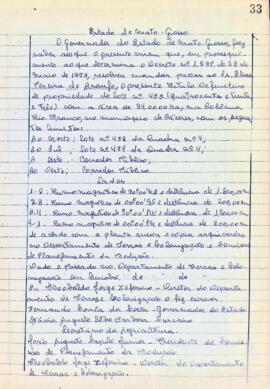 33
Estado de Mato-Grosso
O Governador do Estado de Mato-Grosso, faz
saber aos que o presente virem que, em prosegui-
mento ao que determina o Decreto nº 1.598, de 22 de
Maio de 1953, resolveu mandar passar ao Sr.
Pereira de Araujo, O presente titulo Definitivo
de propriedade do lote nº 433 (quatrocentos e trinta
e três) com a área de 24.0000ha, na Colônia
Rio Branco, no município de Cáceres, com os seguin-
tes limites
Ao Norte: Lote nº 432 da Quadra nº 4;
Ao Sul: Lote nº 434 da Quadra nº 4;
A Este: Corredor Público;
Ao Oeste: Corredor Público.
Lados
1-2: Rumo magnético de e distância de 1.200,00m
2-3: Rumo magnético de e distância de 200,00m
3-4: Rumo magnético de e distância de 1.200,00m
4-1: Rumo magnético de e distância de 200,00m
de acôrdo com a planta anexa e cópia arquivadas
no Departamento de Terras e Colonização e Comissão
de Planejamento da Produção.
Dado e Passado no Departamento de Terras e Colo-
nização em Cuiabá, de de
Eu Theobaldo Jorge Zeferino - Diretor do Departa-
mento de Terras e Colonização o fiz escrever.
Fernando Corrêa da Costa - Governador do Estado
Secretário da Agricultura.
João Augusto - Presidente da Comis-
são de Planejamento da Produção
Theobaldo Jorge Zeferino - Diretor do Departamento
de Terras e Colonização.